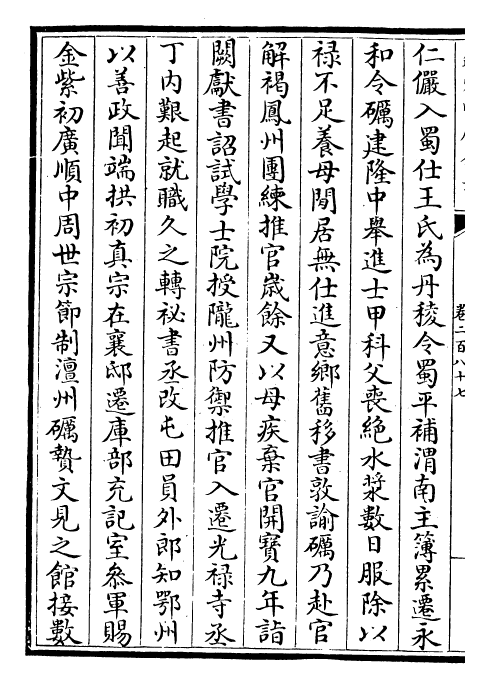 卷二百八十七
仁儼入蜀仕王氏為丹稜令蜀平補渭南主簿累遷永
和令礪建隆中舉進士甲科父喪絶水漿數日服除以
祿不足養母閒居無仕進意鄉舊移書敦諭礪乃赴官
解褐鳳州團練推官歲餘又以母疾棄官開寶九年詣
闕獻書詔試學士院授隴州防禦推官入遷光祿寺丞
丁內艱起就職久之轉祕書丞改屯田員外郎知鄂州
以善政聞端拱初真宗在襄邸遷庫部充記室叅軍賜
金紫初廣順中周世宗節制澶州礪贄文見之館接數